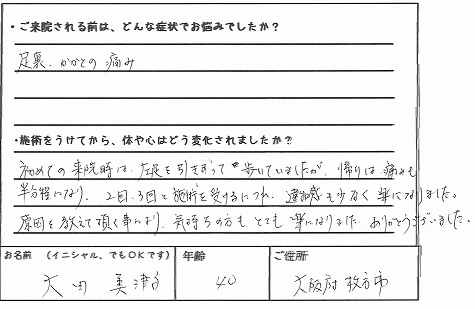 ・ご来院される前は、どんな症状でお悩みでしたか？
足裏、かかとの痛み
・施術をうけてから、体や心はどう変化されましたか？
初めての来院時は、左足を引きずって歩いていましたが、帰りは痛みも
半分程になり、2回、3回と施術を受けるにつれ、違和感も少なく楽になりました。
原因を教えて頂く事により、気持ちの方もとても楽になりました。ありがとうございました。
お名前 （イニシャル、でもOKです） 年齢 ご住所
太田 美津子 40 大阪府枚方市